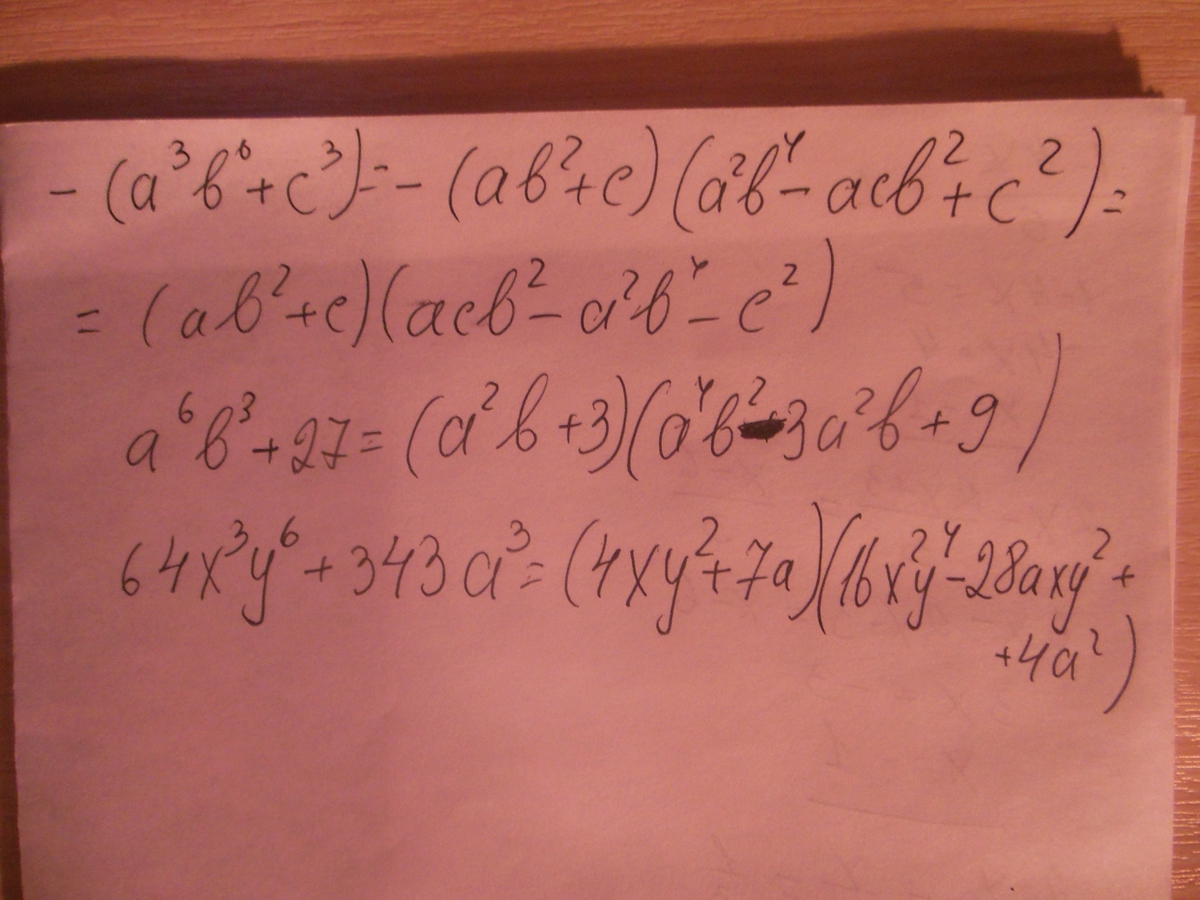 - (a³b⁶+c³)=-(ab²+c)(a²b⁴-acb²+c²)=
= (ab²+c)(acb²-a²b⁴-c²)
a⁶b³+27=(a²b+3)(a⁴b²-3a²b+9)
64x³y⁶+343a³=(4xy²+7a)(16x²y⁴-28axy²+
+4a²)